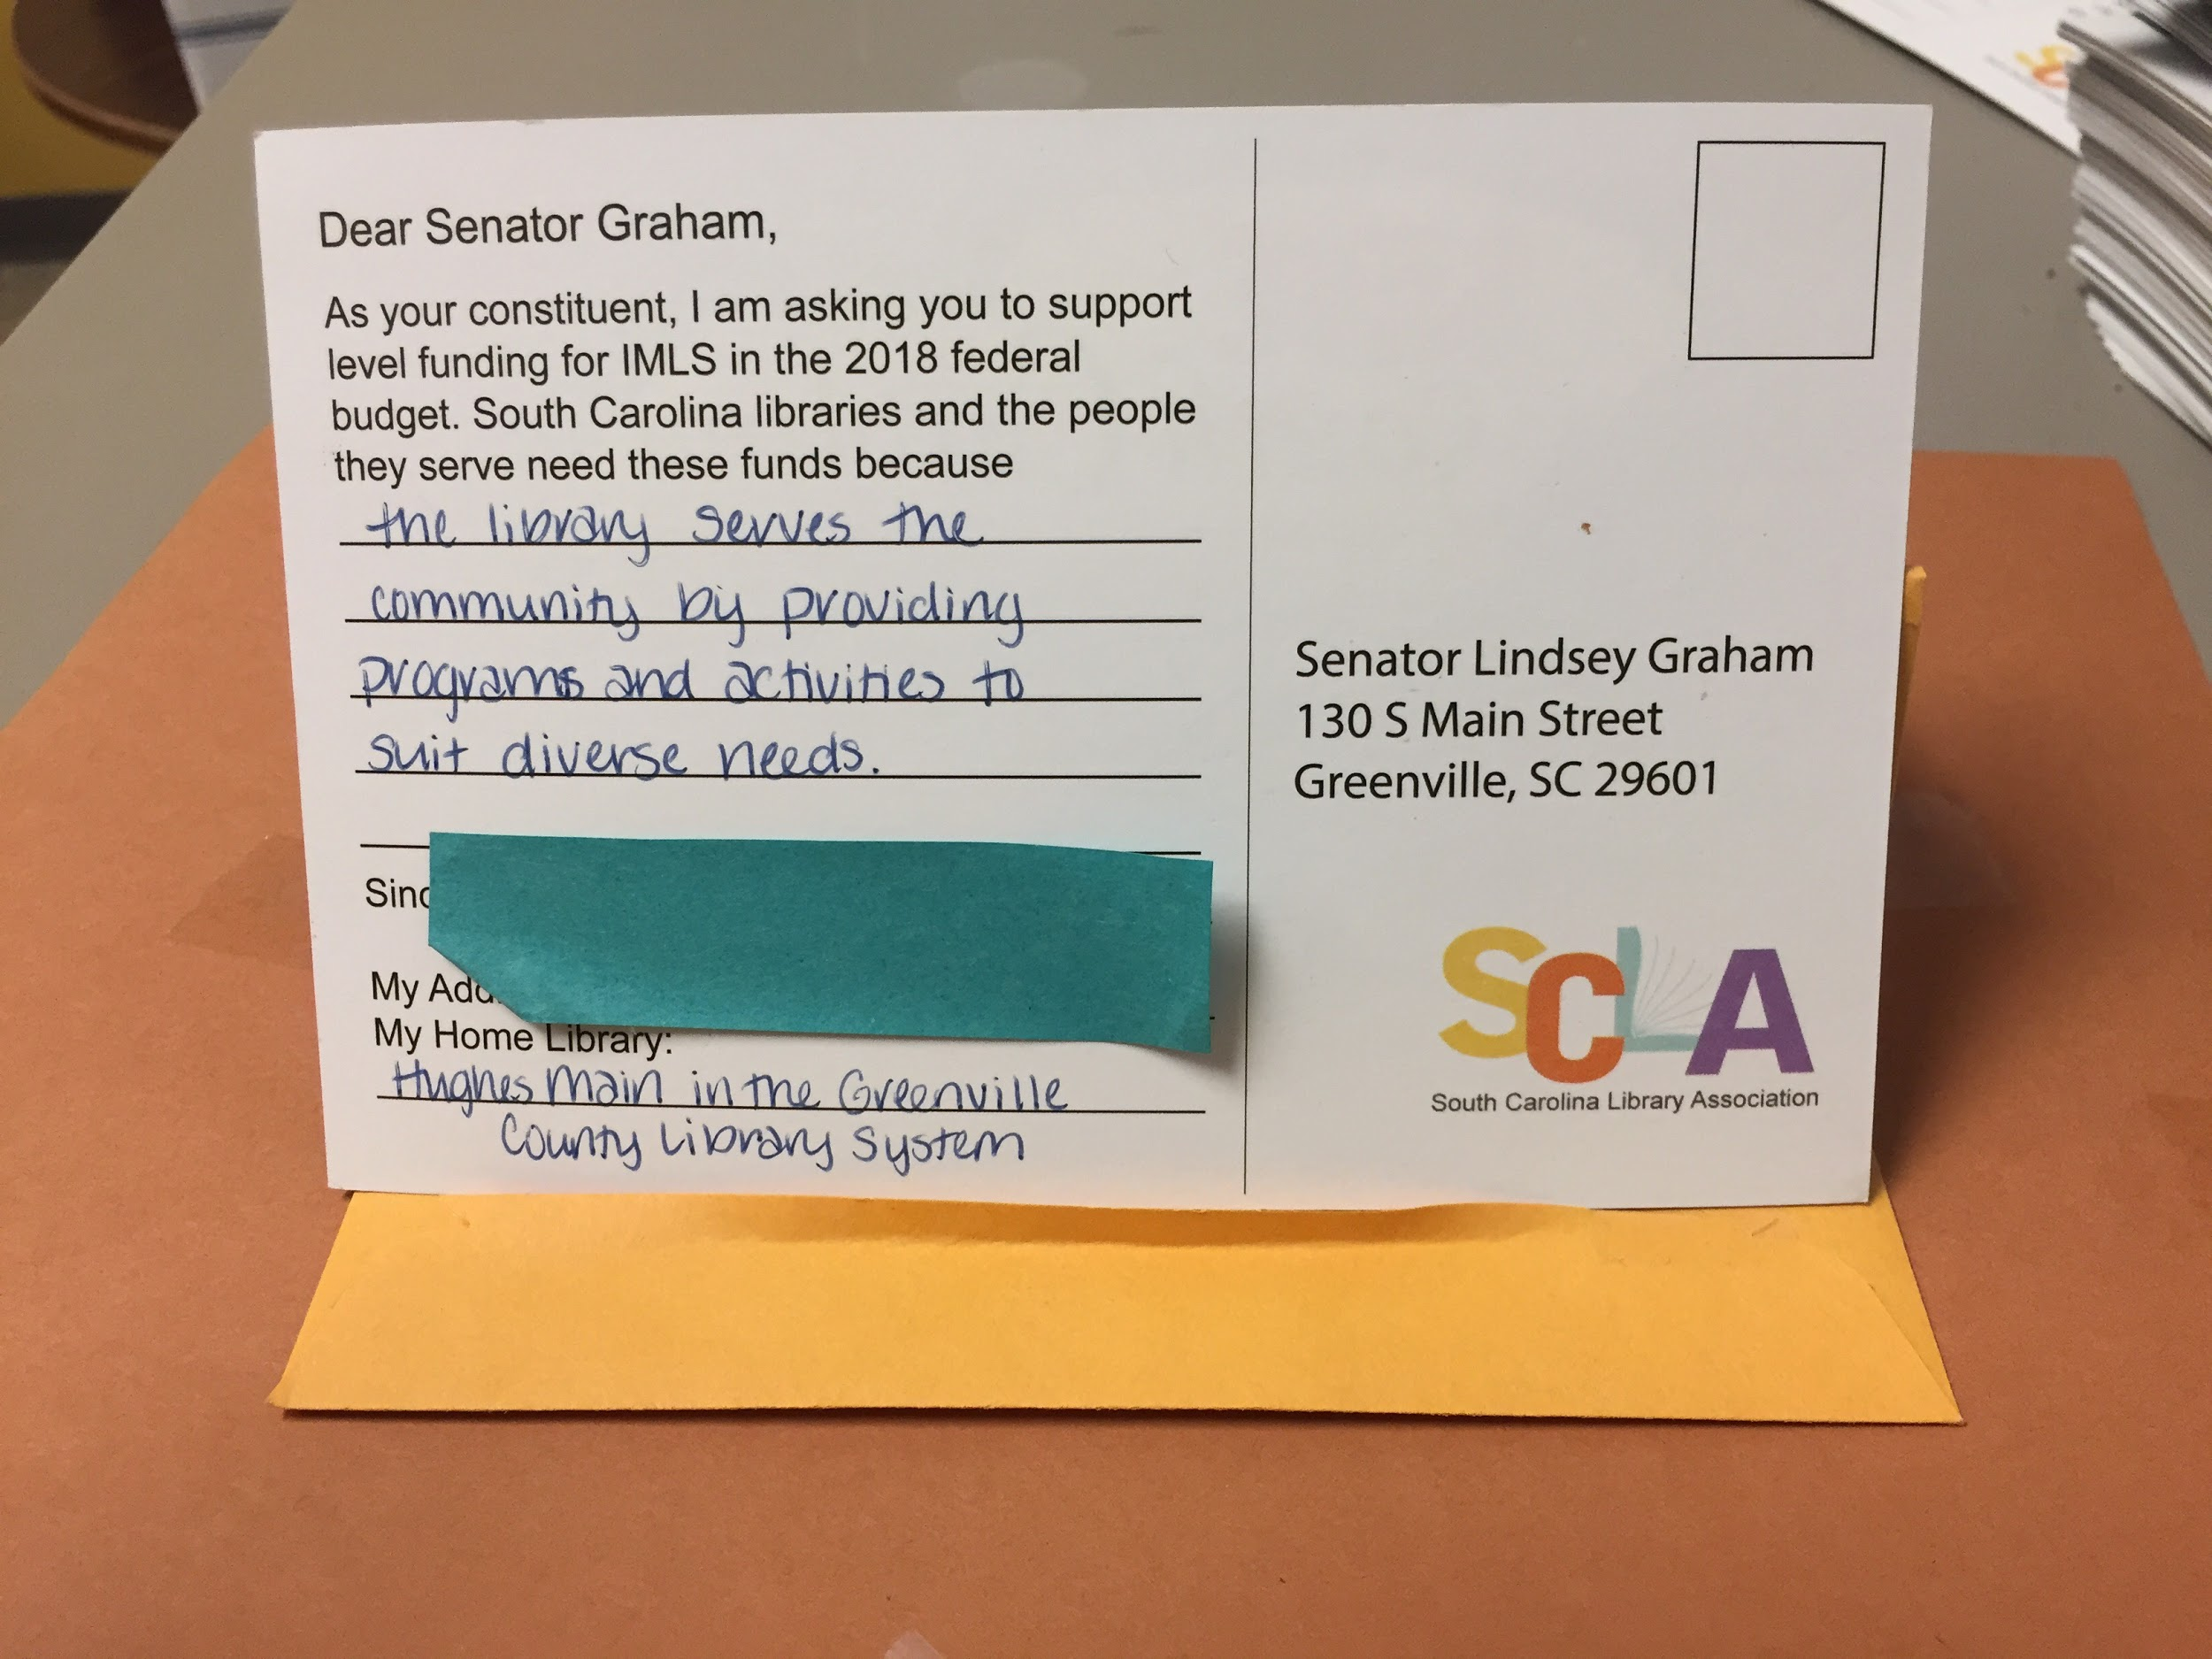 Dear Senator Graham,
As your constituent, I am asking you to support
level funding for IMLS in the 2018 federal
budget. South Carolina libraries and the people
they serve need these funds because
the library serves the
community by providing
programs and activities to
suit diverse needs.
Sinc
My Add
My Home Library:
Hughes Main in the Greenville
County Library System
Senator Lindsey Graham
130 S Main Street
Greenville, SC 29601
SCLA
South Carolina Library Association